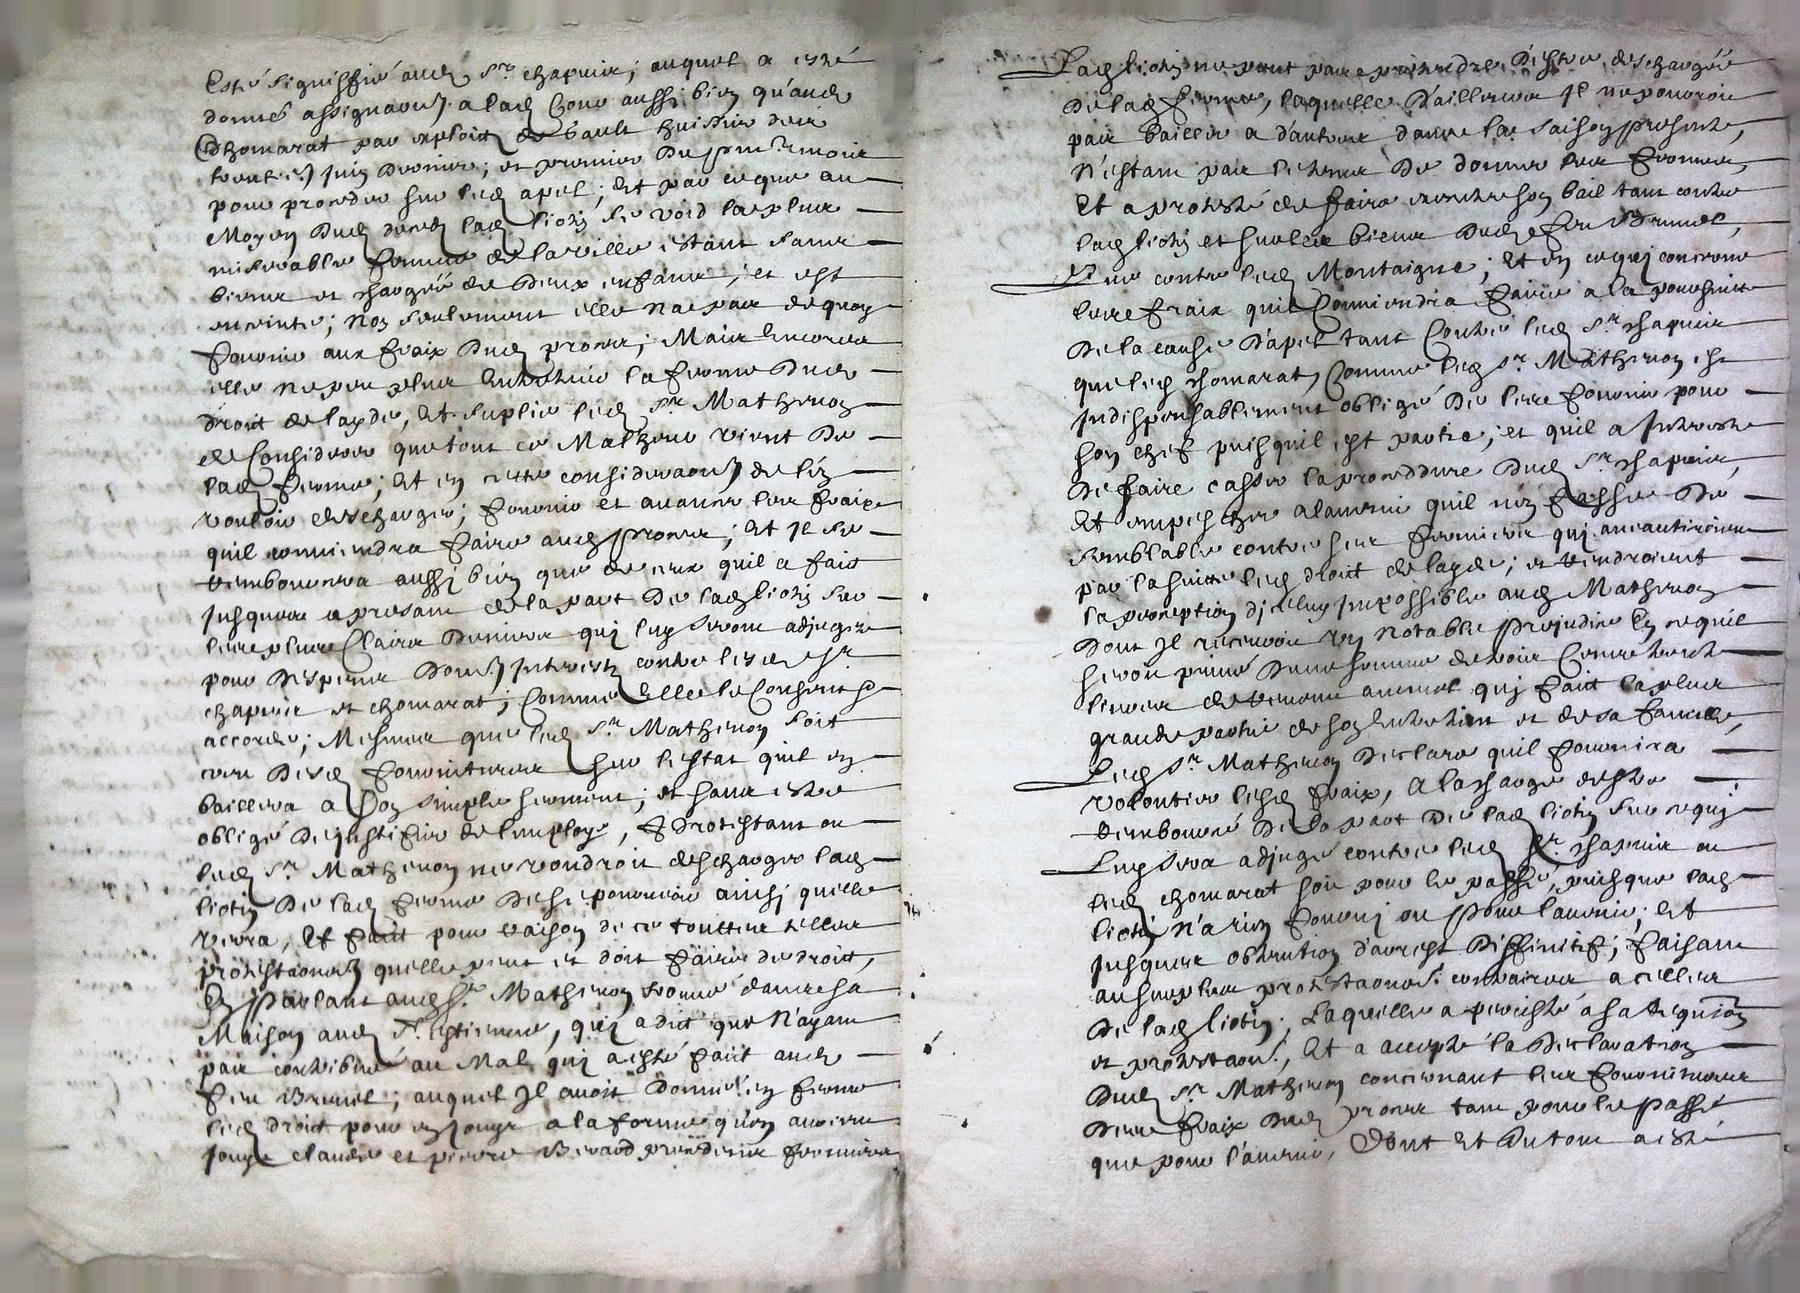 Esté signiffié aud sr chapuis; auquel a esté
donné assignaon a lad Cour aussi bien qu'aud
Chomarat par exploit de Sault huissier des
trente juin dernier; et premier du pnt mois
pour proceder sur led apel; Et par ce que au
Moyen dud deceds lad liotin se void la plus
miserable femme de la ville estant sans
biens et chargée de deux enfans; et est
enceinte; non seulement elle n'a pas de quoy
fournir aux fraix dud proces; Mais Encores
elle ne peu plus Entretenir la ferme dud
droit de layde, Et suplie led sr Mathenon
de Considerer que tout ce Malheur vient de
lad ferme; Et en cette consideraon de l'en
vouloir descharger; fournir et avancer les fraix
quil conviendra faire aud proces; Et Il se
remboursera aussi bien que de ceux quil a fait
jusques a presant de la part de lad liotin sur
les plus Clairs deniers qui luy seront adjugez
pour despens dom Interestz contre lesd sr
chapuis et chomarat; comme Elle le Consent et
accorde; Mesmes que led sr Mathenon soit
creu desd fournitures sur l'estat quil en
baillera a Son simple serment; et sans estre
obligé de justifier de l'employ, Et protestant ou
led sr Mathenon ne voudroit descharger lad
liotin de lad ferme de se pourvoir ainsi quelle
verra, Et faut pour raison de ce touttes telles
protestaons quelle peut et doit faire de droit,
En parlant aud sr Mathenon trouvé dans sa
Maison aud St estienne, qui a dict que n'ayant
pas contribué au Mal qui a esté fait aud
feu Brunel; auquel Il avoit donné en ferme
led droit pour en jouyr a la forme qu'en avoient
jouy claude et pierre Berard precedens fermiers
Lad liotin ne peut pas pretendre d'estre deschargée
de lad ferme, laquelle d'ailleurs Il ne pouroit
pas bailler a d'autres dans la saison presente,
n'estant pas le temps de donner les fermes,
Et a protesté de faire executer son bail tant contre
lad liotin et sur les biens dud feu Brunel,
que contre led Montaigne; Et en ce qui concerne
les fraix quil Conviendra faire a la poursuitte
de la cause d'apel tant Contre led sr chapuis
que led chomarat, Comme led sr Mathenon est
Indispensablement obligé de les fournir pour
son chef puisquil est partie; et quil a Interest
de faire casser la procedure dud sr chapuis,
Et empescher a ladvenir quil n'en fasse de
semblable contre ses fermiers qui aneantiroient
par la suitte led droit de layde; et rendroient
la perception d'iceluy Impossible aud Mathenon
dont Il recevroit un notable prejudice En ce quil
seroit privé d'une somme de trois Cens trente
livres de revenu annuel qui fait la plus
grande partie de son Entretient et de sa famille,
Led sr Mathenon declare quil fournira
volontiers lesd fraix, A la charge destre
remboursé de la part de lad liotin sur ce qui
Luy sera adjugé contre led sr chapuis ou
led chomarat soit pour le passé, puisque lad
liotin n'a rien fourny ou pour ladvenir; Et
jusques obtention d'arrest diffinitif; faisant
au surplus protestaons contraires a celles
de lad liotin; Laquelle a persisté a sa requion
et protestaons, Et a accepté la declaration
dud sr Mathenon concernant les fournitures
des fraix dud proces tant pour le passé
que pour l'avenir, Dont Et du tout a esté